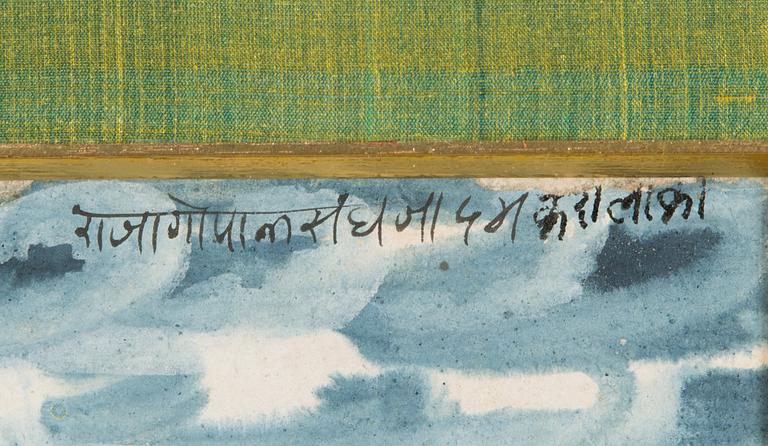 राजागोपालसंघजा ५ म कशलाका